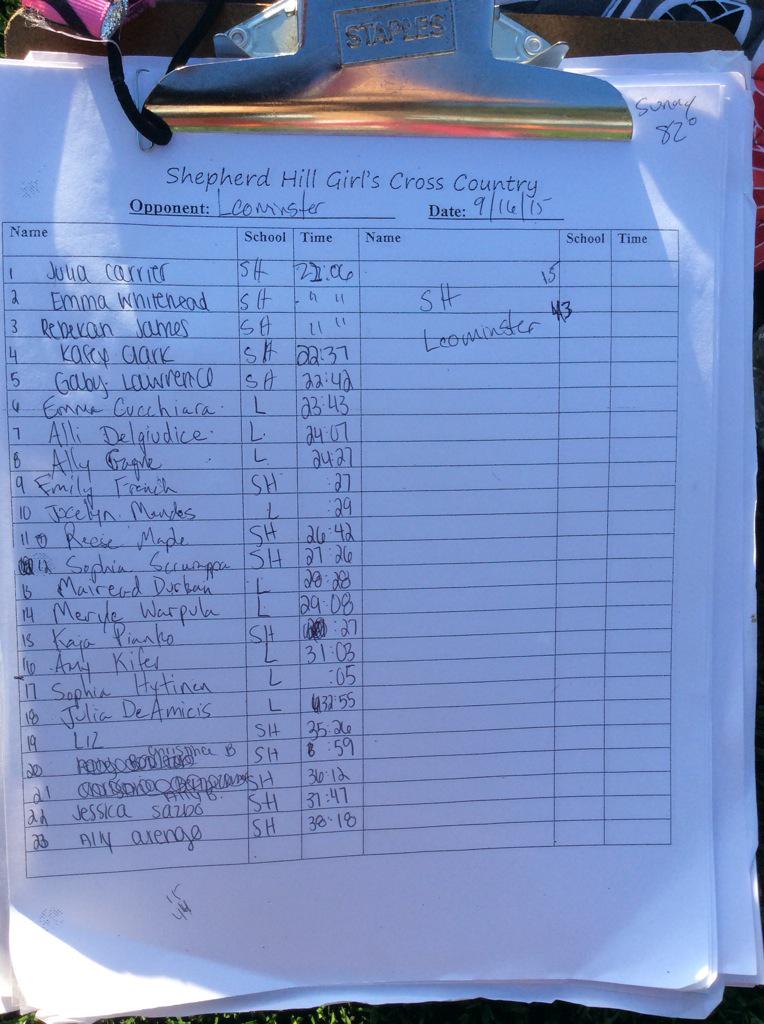 STAPLES
Sunny
82°
Shepherd Hill Girl's Cross Country
Opponent: Leominster Date: 9/16/15
Name School Time Name School Time
1 Julia Carrier SH 22:06 15
2 Emma Whitehead SH " " SH 43
3 Rebekah James SH " " Leominster
4 Karey Clark SH 22:37
5 Gaby Lawrence SH 22:42
6 Emma Cucchiara L 23:43
7 Alli Delgiudice L 24:07
8 Ally Gagne L 24:27
9 Emily French SH :27
10 Jocelyn Mendes L :29
11 Reese Maple SH 26:42
12 Sophia SH 27:26
13 Mairead Durkan L 28:28
14 Meryle Warpula L 29:08
15 Kaja Pianko SH :27
16 Amy Kifer L 31:03
17 Sophia Hytinen L :05
18 Julia DeAmicis L 32:55
19 Liz SH 35:26
20 Christina B SH :59
21 Ally B. SH 36:12
22 Jessica Sazbo SH 37:47
23 Ally arengo SH 38:18
15
44